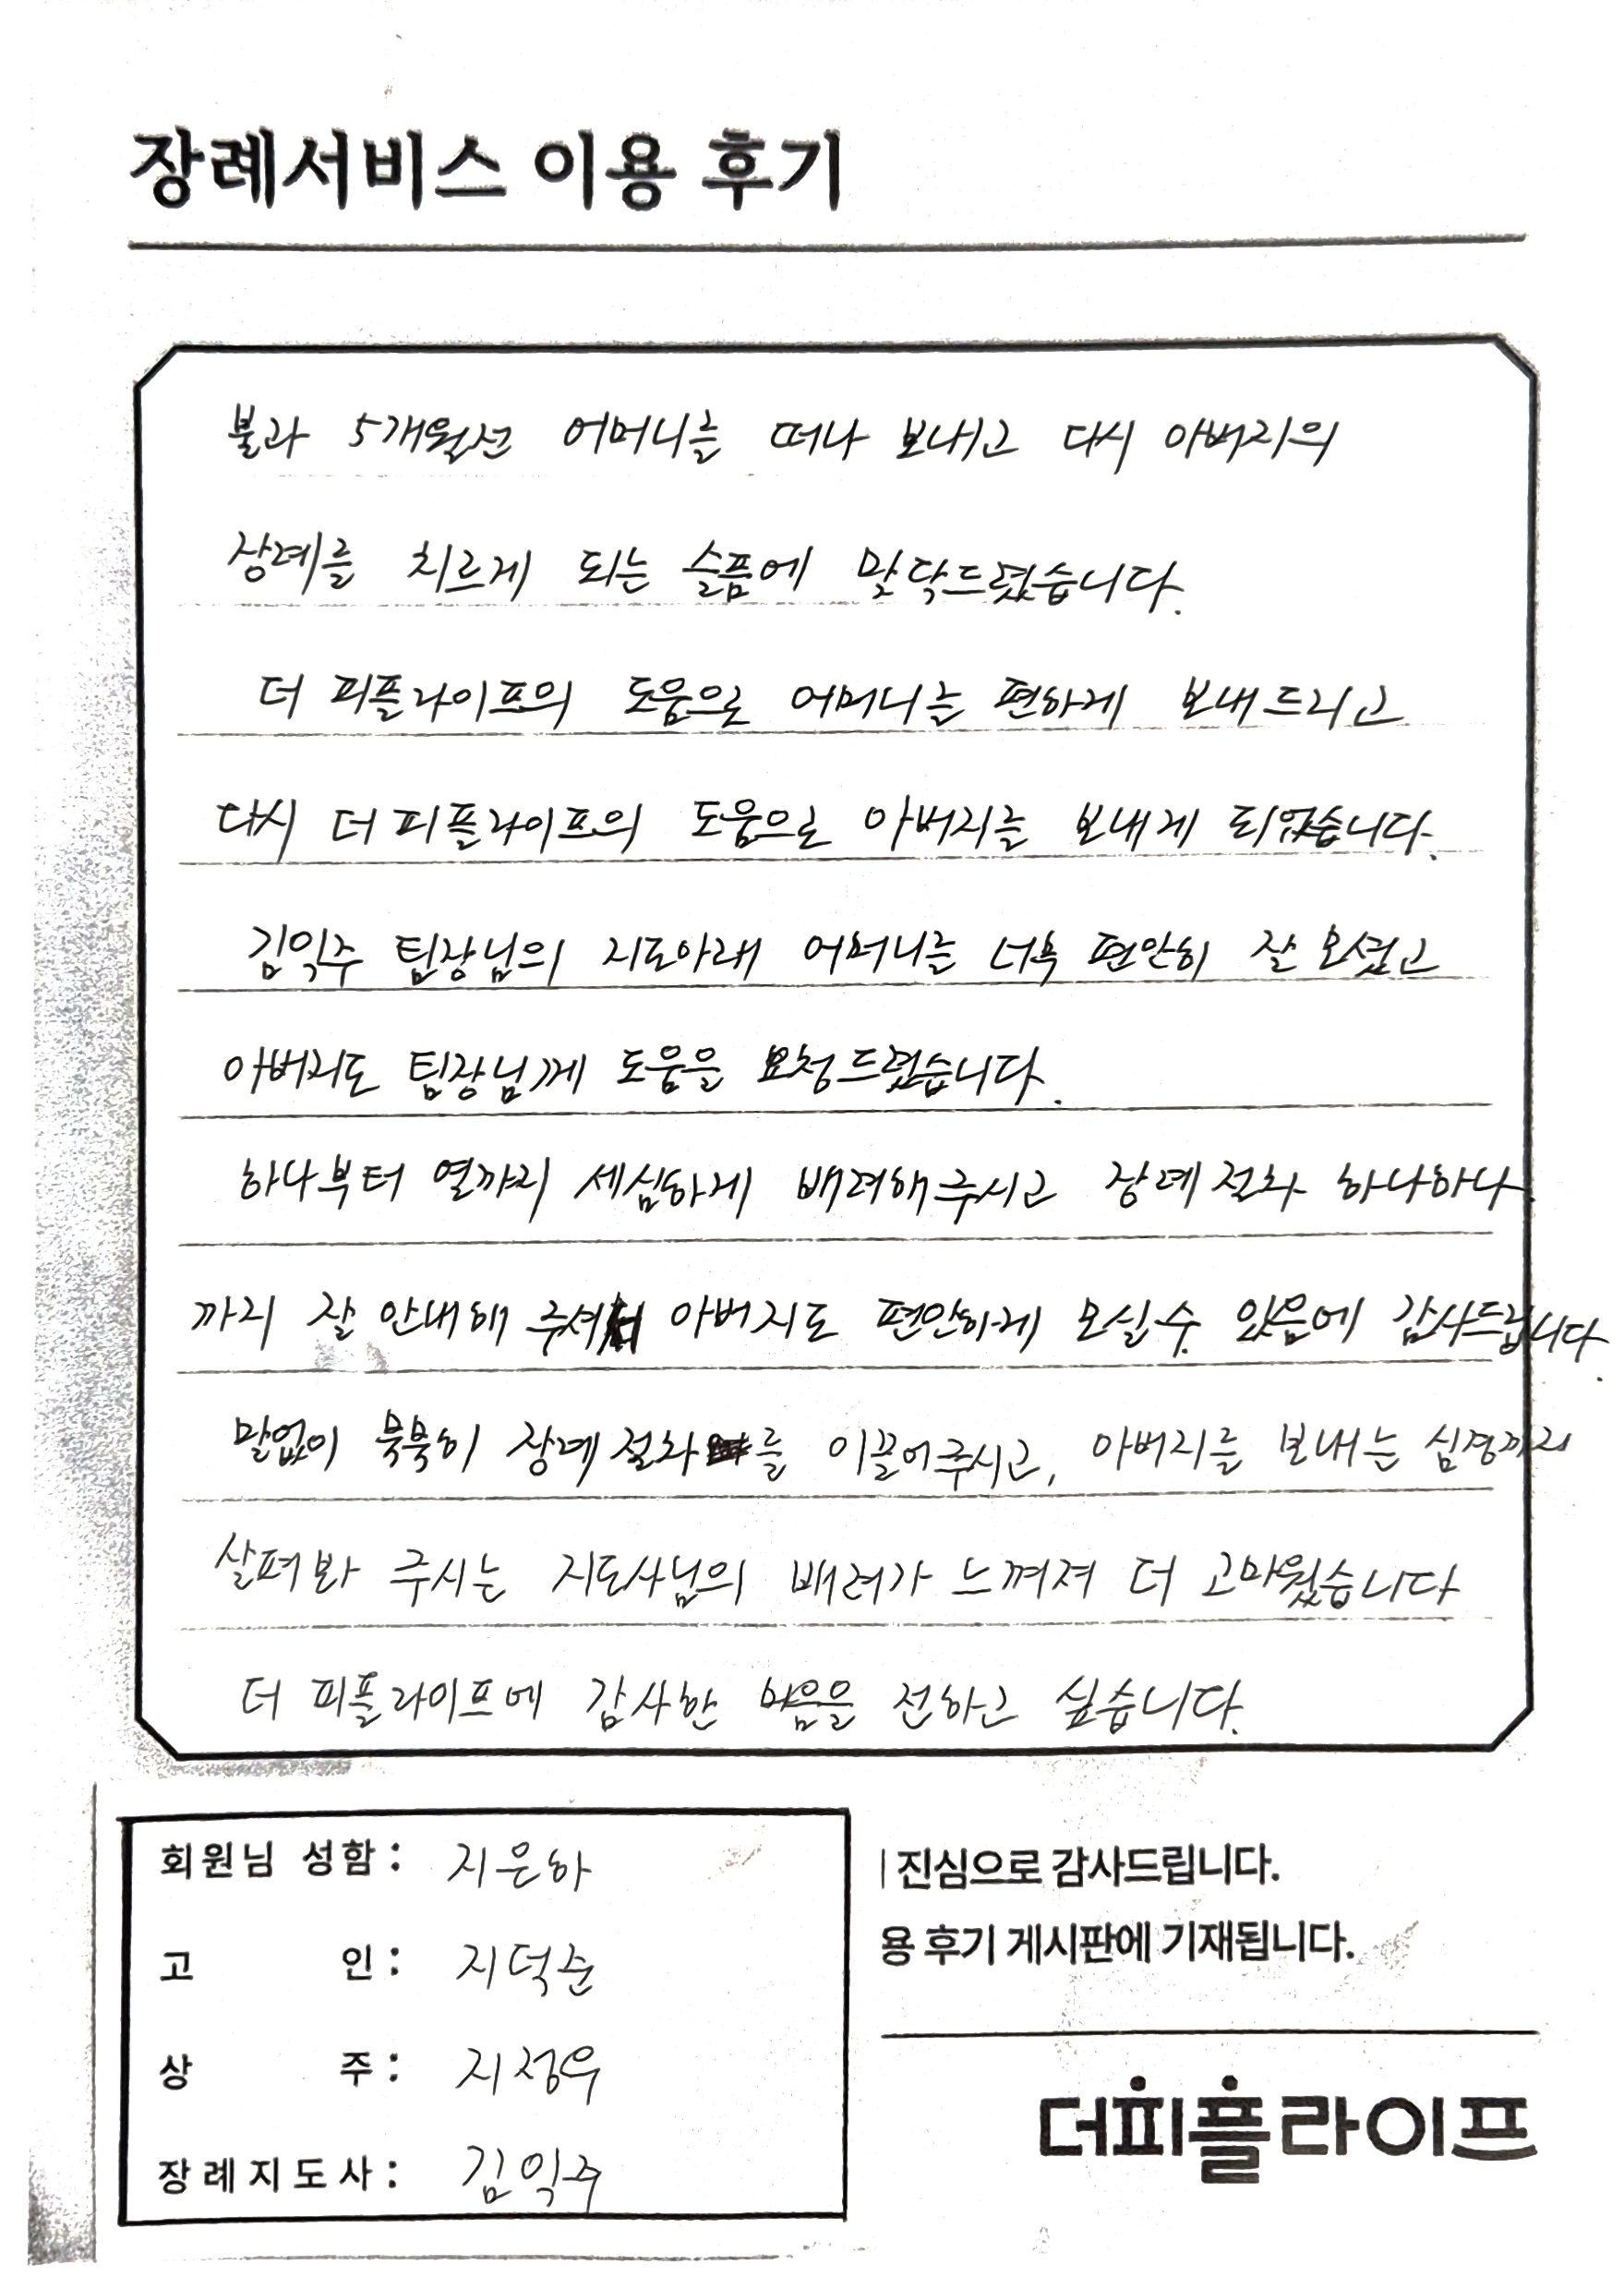 장례서비스 이용 후기
불과 5개월전 어머니를 떠나 보내고 다시 아버지의
장례를 치르게 되는 슬픔에 맞닥드렸습니다.
더 피플라이프의 도움으로 어머니를 편하게 보내드리고
다시 더 피플라이프의 도움으로 아버지를 보내게 되었습니다.
김익주 팀장님의 지도아래 어머니를 너무 편안히 잘 모셨고
아버지도 팀장님께 도움을 요청드렸습니다.
하나부터 열까지 세심하게 배려해주시고 장례절차 하나하나
까지 잘 안내해 주셔서 아버지도 편안하게 모실수 있음에 감사드립니다.
말없이 묵묵히 장례절차를 이끌어주시고, 아버지를 보내는 심경까지
살펴봐 주시는 지도사님의 배려가 느껴져 더 고마웠습니다
더 피플라이프에 감사한 마음을 전하고 싶습니다.
회원님 성함: 지은하
고 인: 지덕순
상 주: 지정우
장례지도사: 김익주
진심으로 감사드립니다.
용 후기 게시판에 기재됩니다.
더피플라이프